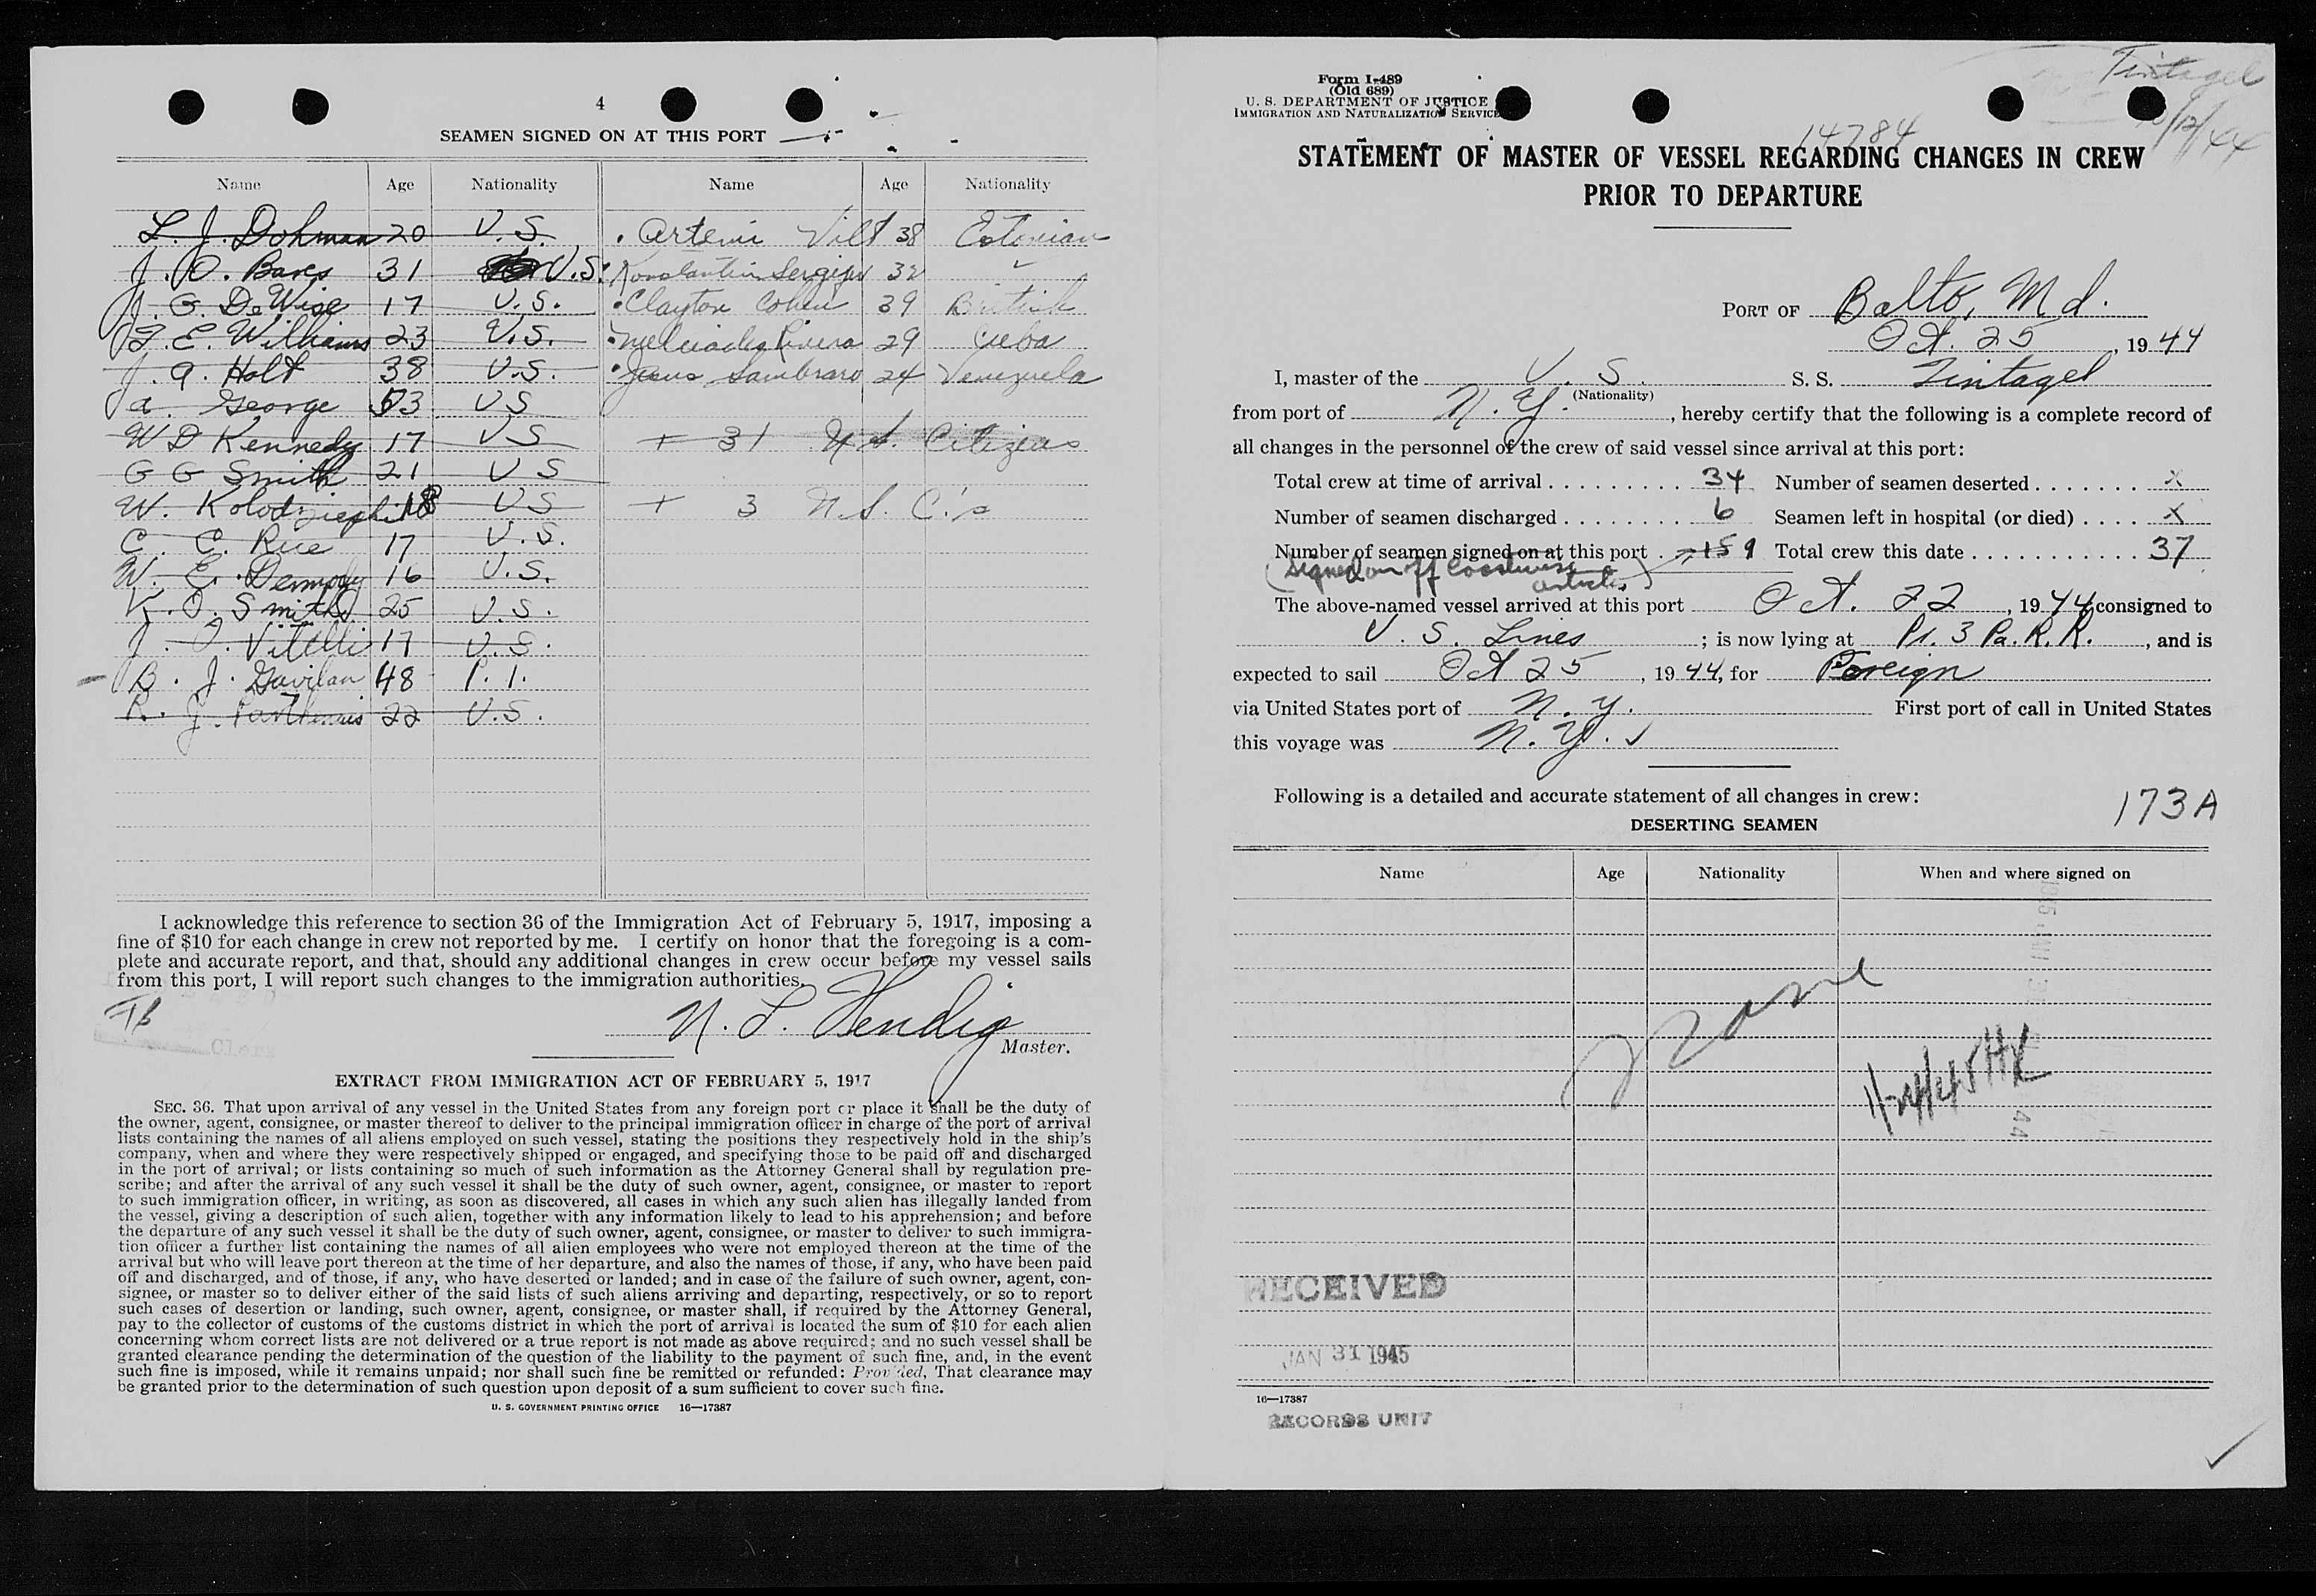 4
SEAMEN SIGNED ON AT THIS PORT
Name Age Nationality Name Age Nationality
L. J. Dohman 20 U.S. Artemi Vilt 38 Estonian
J. O. Bares 31 U.S. Konstantin 32 "
J. G. DeWise 17 U.S. Clayton Cohen 39 British
J. E. Williams 23 U.S. Rivera 29 Cuba
J. A. Holt 38 U.S. Jesus Sambrano 24 Venezuela
A. George 53 US
W D Kennedy 17 US + 31 U.S. Citizens
G G Smith 21 US
W. 18 US + 3 N.S. C.'s
C. C. Rice 17 U.S.
W. E. 16 U.S.
V. O. Smith 25 U.S.
J. J. Vitelli 17 U.S.
B. J. Gavilan 48 P.I.
R. J. 22 U.S.
I acknowledge this reference to section 36 of the Immigration Act of February 5, 1917, imposing a
fine of $10 for each change in crew not reported by me. I certify on honor that the foregoing is a com-
plete and accurate report, and that, should any additional changes in crew occur before my vessel sails
from this port, I will report such changes to the immigration authorities.
N. L. Hendig
Master.
EXTRACT FROM IMMIGRATION ACT OF FEBRUARY 5, 1917
SEC. 36. That upon arrival of any vessel in the United States from any foreign port or place it shall be the duty of
the owner, agent, consignee, or master thereof to deliver to the principal immigration officer in charge of the port of arrival
lists containing the names of all aliens employed on such vessel, stating the positions they respectively hold in the ship's
company, when and where they were respectively shipped or engaged, and specifying those to be paid off and discharged
in the port of arrival; or lists containing so much of such information as the Attorney General shall by regulation pre-
scribe; and after the arrival of any such vessel it shall be the duty of such owner, agent, consignee, or master to report
to such immigration officer, in writing, as soon as discovered, all cases in which any such alien has illegally landed from
the vessel, giving a description of such alien, together with any information likely to lead to his apprehension; and before
the departure of any such vessel it shall be the duty of such owner, agent, consignee, or master to deliver to such immigra-
tion officer a further list containing the names of all alien employees who were not employed thereon at the time of the
arrival but who will leave port thereon at the time of her departure, and also the names of those, if any, who have been paid
off and discharged, and of those, if any, who have deserted or landed; and in case of the failure of such owner, agent, con-
signee, or master so to deliver either of the said lists of such aliens arriving and departing, respectively, or so to report
such cases of desertion or landing, such owner, agent, consignee, or master shall, if required by the Attorney General,
pay to the collector of customs of the customs district in which the port of arrival is located the sum of $10 for each alien
concerning whom correct lists are not delivered or a true report is not made as above required; and no such vessel shall be
granted clearance pending the determination of the question of the liability to the payment of such fine, and, in the event
such fine is imposed, while it remains unpaid; nor shall such fine be remitted or refunded: Provided, That clearance may
be granted prior to the determination of such question upon deposit of a sum sufficient to cover such fine.
U. S. GOVERNMENT PRINTING OFFICE 16—17387
Form I-489
(Old 689)
U. S. DEPARTMENT OF JUSTICE
IMMIGRATION AND NATURALIZATION SERVICE
Tintagel
10/12/44
14784
STATEMENT OF MASTER OF VESSEL REGARDING CHANGES IN CREW
PRIOR TO DEPARTURE
PORT OF Balto, Md.
Oct. 25, 1944
I, master of the U. S. S. S. Tintagel
(Nationality)
from port of N. Y., hereby certify that the following is a complete record of
all changes in the personnel of the crew of said vessel since arrival at this port:
Total crew at time of arrival 34 Number of seamen deserted x
Number of seamen discharged 6 Seamen left in hospital (or died) x
Number of seamen signed on at this port 9 Total crew this date 37
(Signed on off Coastwise
articles)
The above-named vessel arrived at this port Oct. 22, 1944 consigned to
U. S. Lines; is now lying at Pr. 3 Pa. R. R., and is
expected to sail Oct 25, 1944, for Foreign
via United States port of N. Y. First port of call in United States
this voyage was N. Y. ✓
Following is a detailed and accurate statement of all changes in crew:
173A
DESERTING SEAMEN
Name Age Nationality When and where signed on
None
RECEIVED
JAN 31 1945
16—17387
RECORDS UNIT